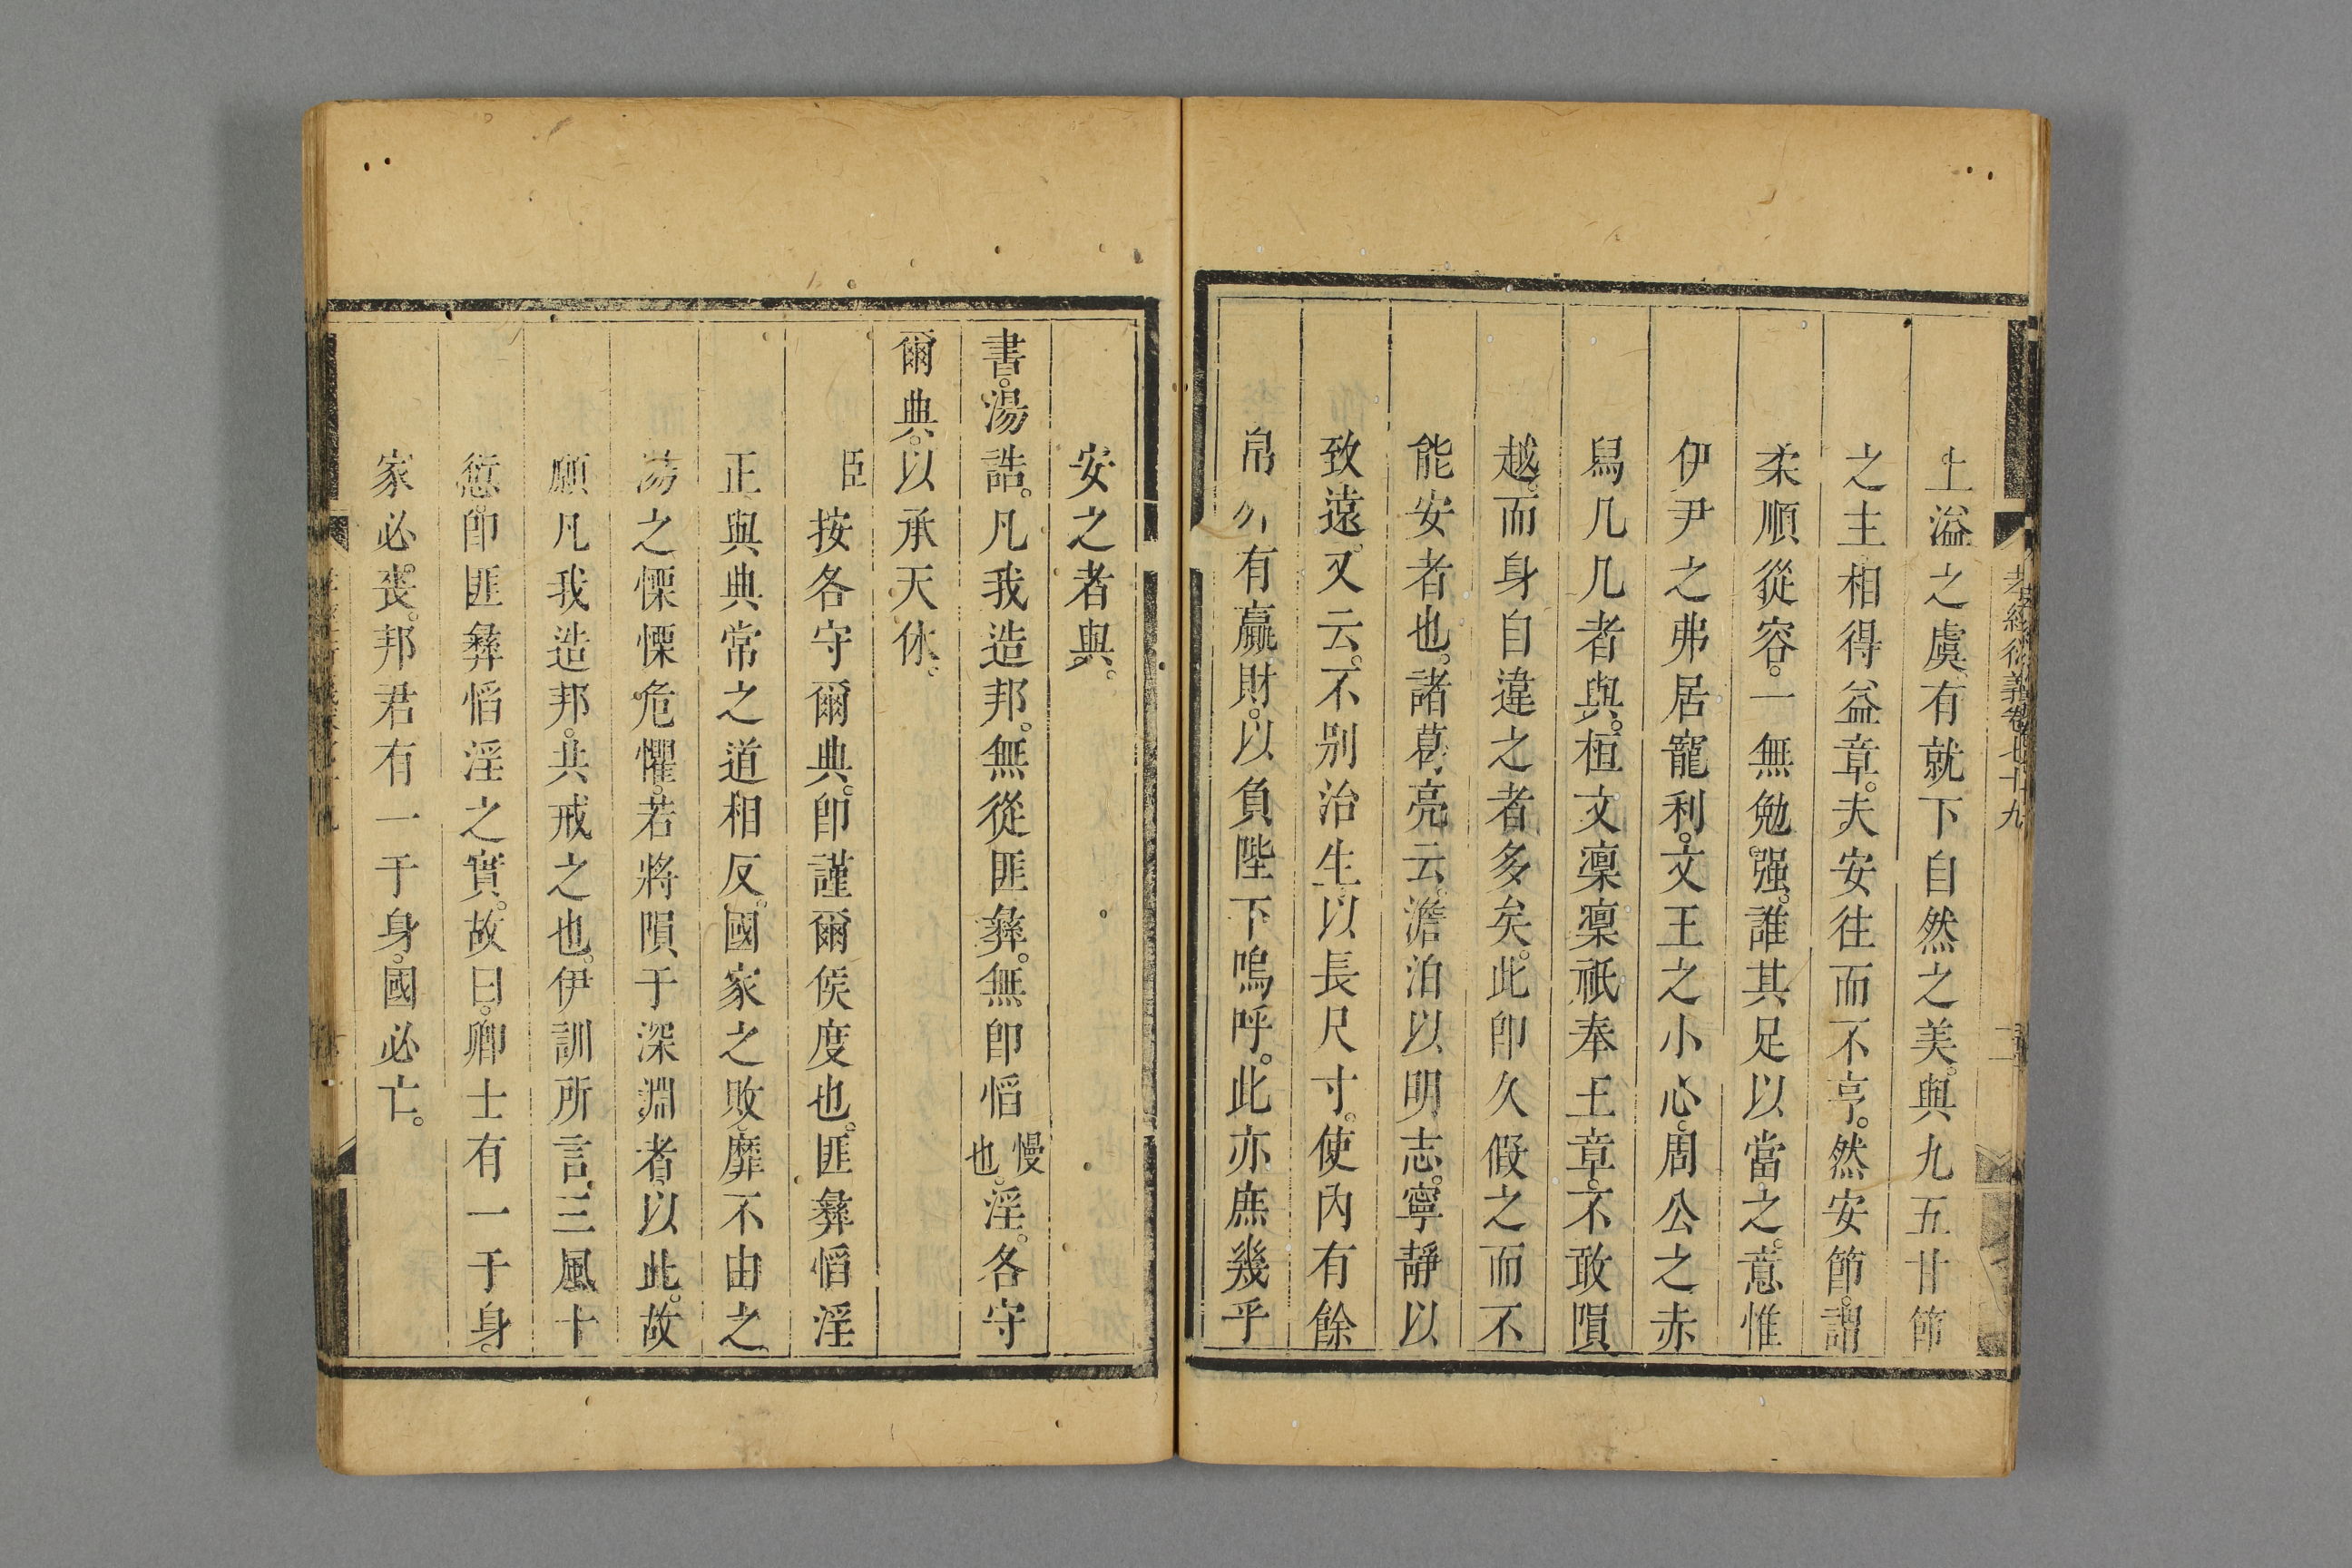 孝經衍義卷七十九
上溢之虞。有就下自然之美。與九五甘節
之主相得益章。夫安往而不亨。然安節。謂
柔順從容。一無勉强。誰其足以當之。意惟
伊尹之弗居寵利。文王之小心。周公之赤
舄几几者與。桓文凜凜祇奉王章。不敢隕
越。而身自違之者多矣。此卽久假之而不
能安者也。諸葛亮云。澹泊以明志。寧靜以
致遠。又云。不别治生以長尺寸。使內有餘
帛外有贏財。以負陛下嗚呼。此亦庶幾乎
安之者與。
書。湯誥。凡我造邦。無從匪彝。無卽慆慢也。淫。各守
爾典。以承天休。
臣按各守爾典。卽謹爾侯度也。匪彝慆淫
正與典常之道相反。國家之敗。靡不由之
湯之慄慄危懼。若將隕于深淵者。以此。故
願凡我造邦。共戒之也。伊訓所言。三風十
愆。卽匪彝慆淫之實。故曰。卿士有一于身。
家必喪。邦君有一于身。國必亡。